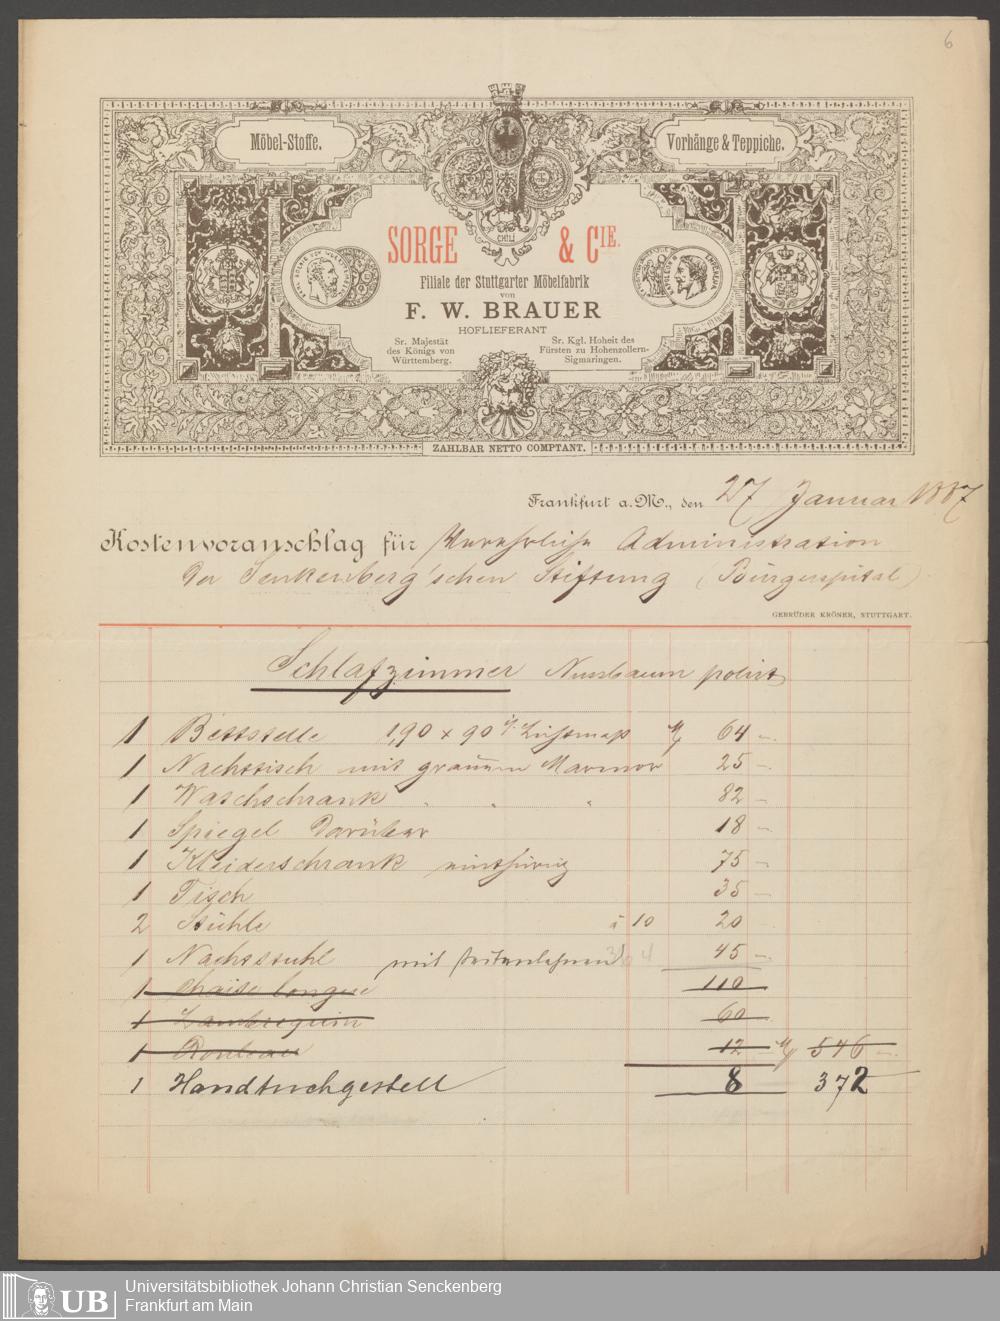 6
Möbel-Stoffe.
Vorhänge & Teppiche.
CHILI
SORGE & CIE.
Filiale der Stuttgarter Möbelfabrik
von
F. W. BRAUER
HOFLIEFERANT
Sr. Majestät
des Königs von
Württemberg.
Sr. Kgl. Hoheit des
Fürsten zu Hohenzollern-
Sigmaringen.
ZAHLBAR NETTO COMPTANT.
Frankfurt a. M., den 27 Januar 1887
Kostenvoranschlag für Verehrliche Administration
der Senkenberg'schen Stiftung (Bürgerspital)
GEBRÜDER KRÖNER, STUTTGART.
Schlafzimmer Nussbaum polirt
1 Bettstelle 1,90 x 90 Lichtmaß M 64 –
1 Nachttisch mit grauem Marmor 25 –
1 Waschschrank " " " 82 –
1 Spiegel darüber 18 –
1 Kleiderschrank einthürig 75 –
1 Tisch 35 –
2 Stühle à 10 20 –
1 Nachtstuhl mit Seitenlehnen 364 45 –
1 Chaise longue 110
1 Lambrequin 60
1 Rouleau 12 – M 546 –
1 Handtuchgestell 8 372
Universitätsbibliothek Johann Christian Senckenberg
Frankfurt am Main
UB